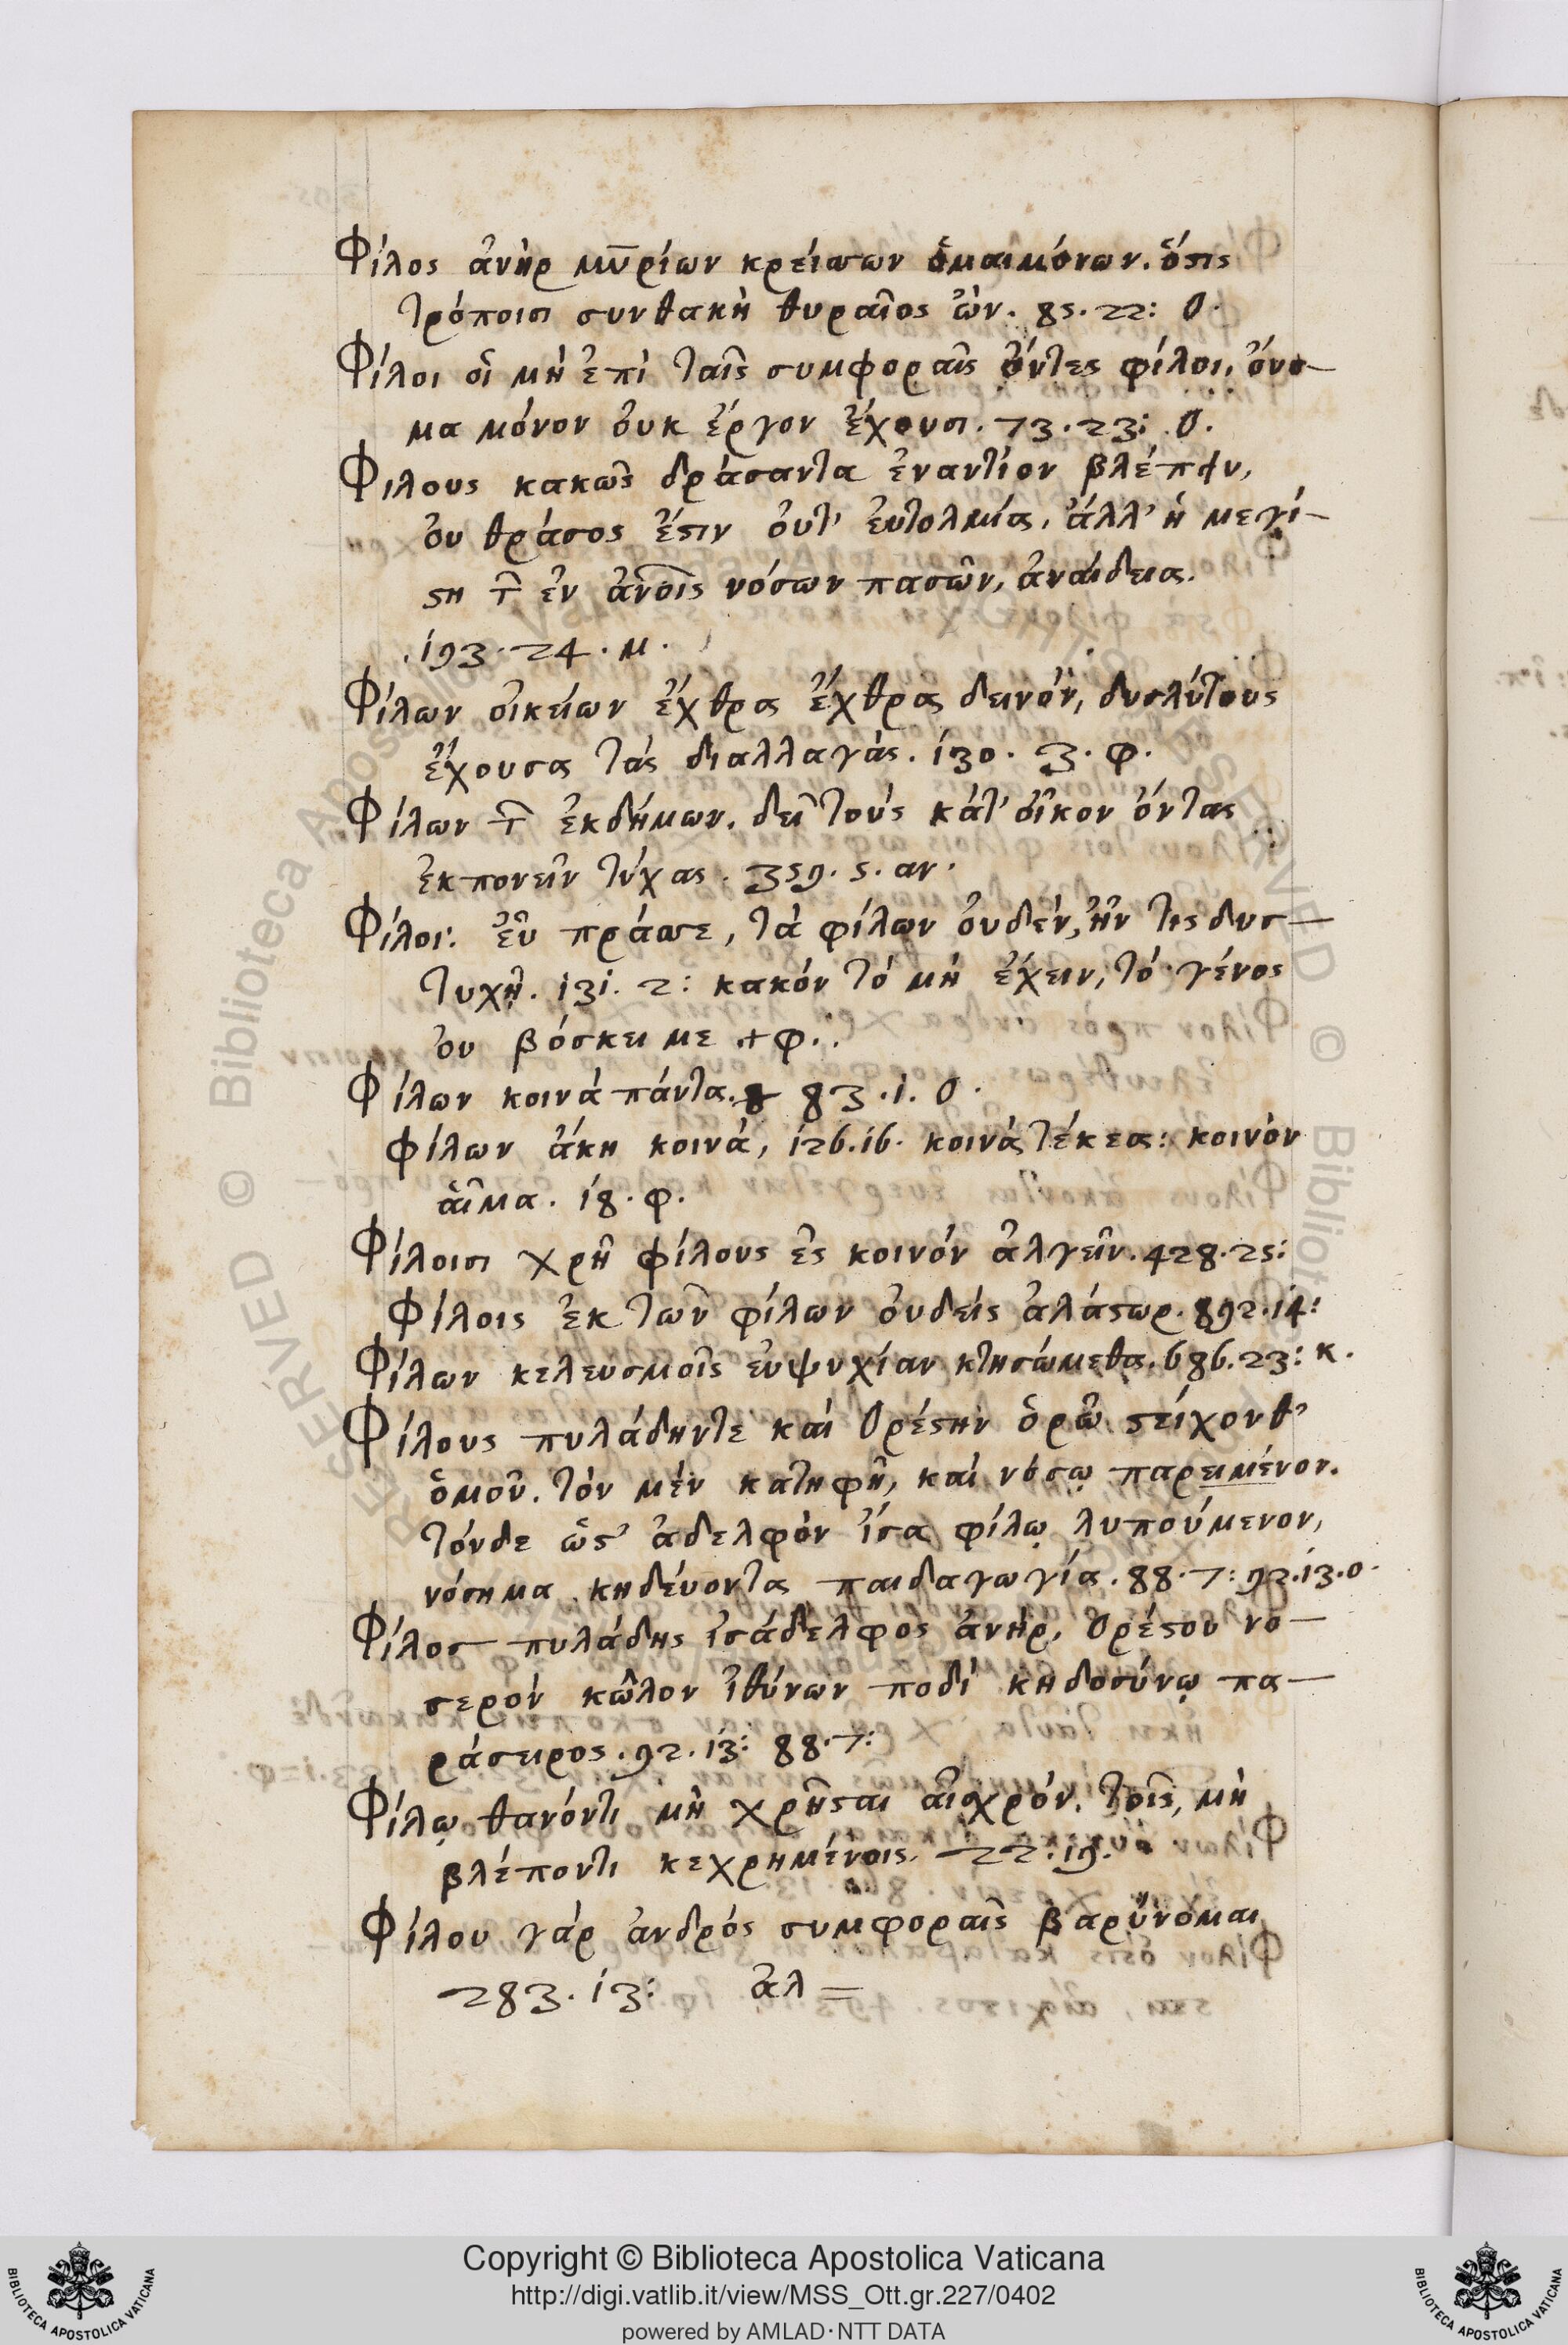 Φίλος ἀνὴρ μυρίων κρείσσων ὁμαιμόνων. ὅστις
τρόποισι συνθακῆ θυραῖος ὢν. 85. 22: Ο.
Φίλοι οἱ μὴ ἐπὶ ταῖς συμφοραῖς ὄντες φίλοι, ὄνο-
μα μόνον οὐκ ἔργον ἔχουσι. 73. 23: Ο.
Φιλους κακῶς δράσαντα ἐναντίον βλέπειν,
ὀυ θράσος ἔστιν ὀυτ' ἐυτολμία. ἀλλ' ἡ μεγί-
στη τ̑ ἐν ἀνοις νόσων πασῶν, ἀναίδεια.
193. 24. μ.
Φίλων οἰκείων ἔχθρα ἔχθρα δεινὸν, δυσλύτους
ἔχουσα τάς διαλλαγάς. 130. 3. φ.
Φίλων τ̑ ἐκδήμων. δεῖ τοὺς κάτ' οἶκον ὄντας
ἐκπονεῖν τύχας. 359. 5. αν.
Φίλοι. ἐῦ πράσσε, τὰ φίλων ὀυδὲν, ἤν τις δυσ-
τυχῆ. 131. 2: κακόν τὸ μὴ ἔχειν, τὸ γένος
ὀυ βόσκει με + φ.
Φίλων κοινά πάντα. 83. 1. Ο.
φίλων ἄκη κοινὰ, 126. 16. κοινὰ τέκεα: κοινὸν
αἷμα. 18. φ.
Φίλοισι χρῆ φίλους ἐς κοινὸν ἀλγεῖν. 428. 25:
Φίλοις ἐκ τῶν φίλων ὀυδεὶς ἀλάστωρ. 892. 14:
Φίλων κελευσμοῖς ἐυψυχίαν κτησώμεθα. 686. 23: κ.
Φίλους πυλάδηντε καὶ Ορέστην ὁρῶ στείχονθ'
ὁμοῦ. τὸν μὲν κατηφῆ, καὶ νόσῳ παρειμένον.
τόνδε ὡς τ' ἀδελφὸν ἴσα φίλῳ λυπούμενον,
νόσημα κηδέυοντα παιδαγωγία. 88. 7: 92. 13. ο.
Φίλος πυλάδης ἰσάδελφος ἀνὴρ, Ορέστου νο-
σερὸν κῶλον ἰθύνων ποδὶ κηδοσύνῳ πα-
ράσειρος. 92. 13: 88. 7:
Φίλῳ θανόντι μὴ χρῆσται αἰσχρόν. τοῖς, μὴ
βλέποντι κεχρημένοις. 22. 19.
Φίλου γάρ ἀνδρός συμφοραῖς βαρύνομαι
283. 13: ἀλ =
Copyright © Biblioteca Apostolica Vaticana
http://digi.vatlib.it/view/MSS_Ott.gr.227/0402
powered by AMLAD·NTT DATA